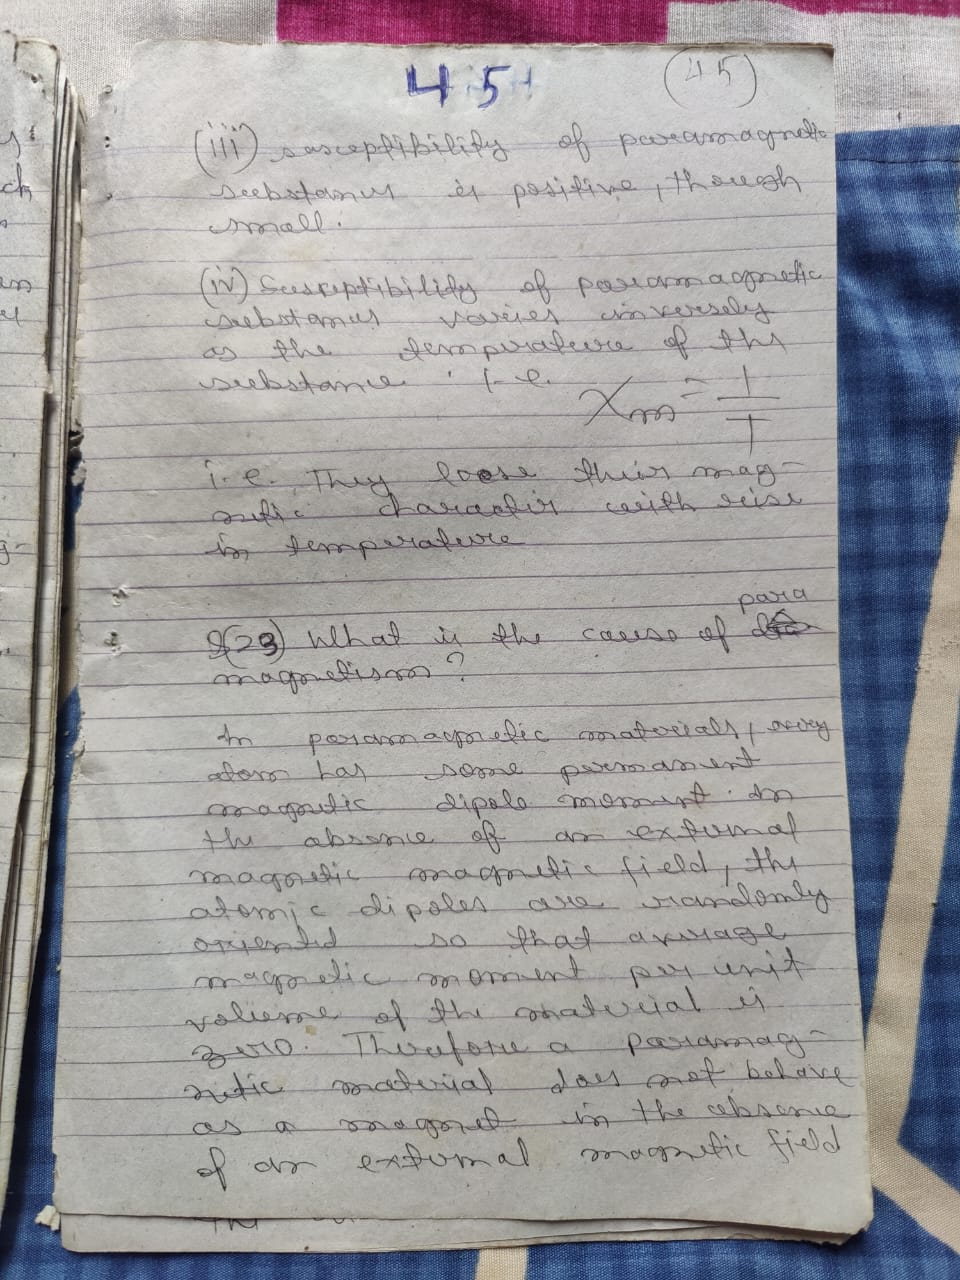 45
(45)
(iii) susceptibility of paramagnetic
substanus is positive, though
small.
(iv) Susceptibility of paramagnetic
substanus varies inversely
as the temperature of the
substance. i.e.
χm = 1/T
i.e. They loose their mag-
netic character with rise
in temperature
Q(23) What is the cause of para
magnetism?
In paramagnetic materials, every
atom has some permanent
magnetic dipole moment. In
the absence of an external
magnetic magnetic field, the
atomic dipoles are randomly
oriented so that average
magnetic moment per unit
volume of the material is
zero. Therefore a paramag-
netic material does not behave
as a magnet in the absence
of an external magnetic field